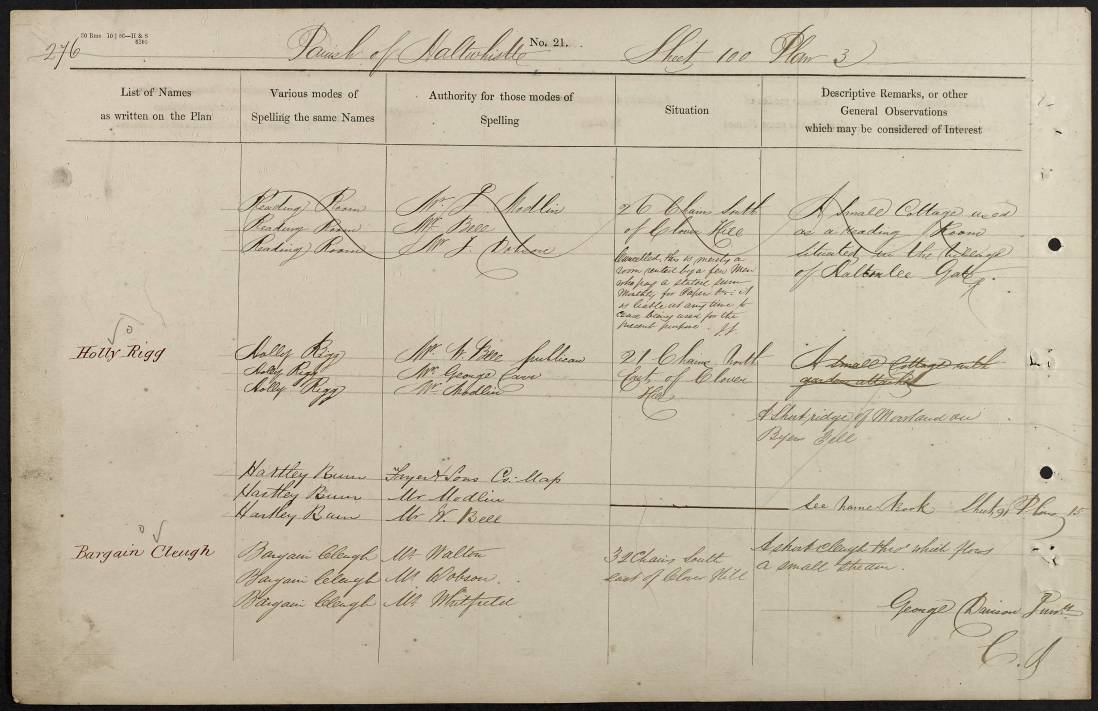 276
No. 21.
Parish of Haltwhistle Sheet 100 Plan 3
List of Names
as written on the Plan
Various modes of
Spelling the same Names
Authority for those modes of
Spelling
Situation
Descriptive Remarks, or other
General Observations
which may be considered of Interest
Reading Room
Reading Room
Reading Room
Mr. J. Modlin
Mr. Bell
Mr. J. Dobson
26 Chains South
of Clover Hill
Cancelled, this is merely a
room rented by a few Men
who pay a stated sum
Monthly for Paper &c: it
is liable at any time to
cease being used for the
present purpose. J.J.
A small Cottage used
as a reading Room
situated in the village
of Halton Lee Gate
Holly Rigg
Holly Rigg
Holly Rigg
Holly Rigg
Mr. W. Bell publican
Mr. George Carr
Mr. Modlin
21 Chains North
East of Clover
Hill
A small Cottage with
garden attached
A short ridge of Moorland on
Byers Fell
Hartley Burn
Hartley Burn
Hartley Burn
Fryer & Sons Co. Map
Mr Modlin
Mr W. Bell
See name Book Sheet 91 Plan 15
Bargain Cleugh
Bargain Cleugh
Bargain Cleugh
Bargain Cleugh
Mr Walton
Mr Dobson.
Mr Whitfield
32 Chains South
east of Clover Hill
A short cleugh thro' which flows
a small stream.
George Davison